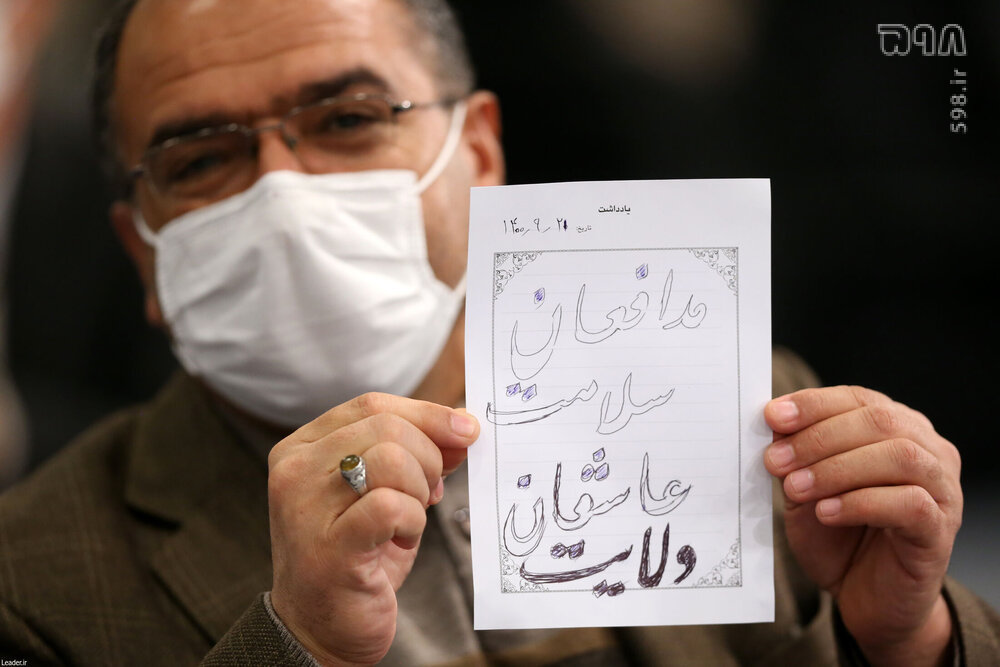 ۵۹۸
598.ir
یادداشت
تاریخ: ۱۴۰۰٫۹٫۲۱
مدافعان
سلامت
عاشقان
ولایت
Leader.ir